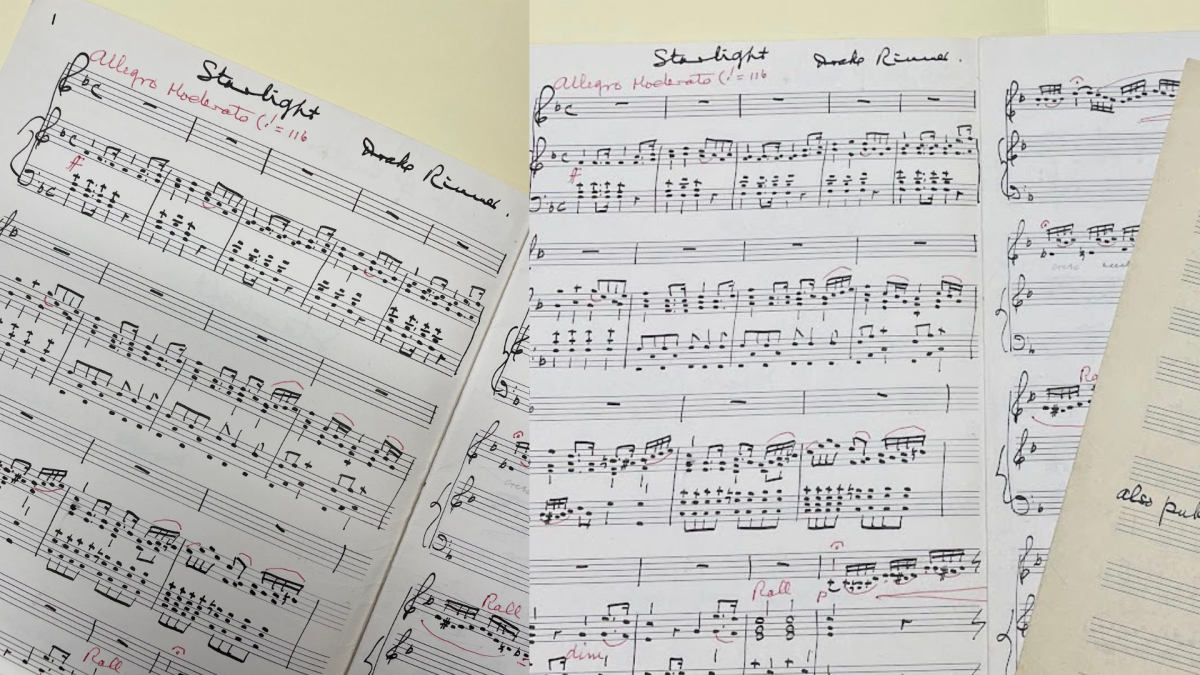 1
Starlight
Allegro Moderato (♩ = 116
Drake Rimmer.
ff
Rall
Rall
Starlight
Drake Rimmer.
Allegro Moderato (♩ = 116
ff
Rall
p
dim
also pub